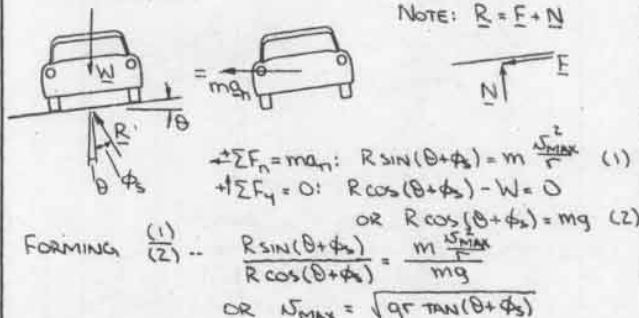 NOTE: R = F + N
W
=
ma_n
F
N
θ
R
θ φ_s
ΣF_n = ma_n: R SIN(θ+φ_s) = m v²_MAX / r (1)
+↑ΣF_y = 0: R COS(θ+φ_s) - W = 0
OR R COS(θ+φ_s) = mg (2)
FORMING (1)/(2) -- R SIN(θ+φ_s) / R COS(θ+φ_s) = m v²_MAX / r / mg
OR v_MAX = √gr TAN(θ+φ_s)